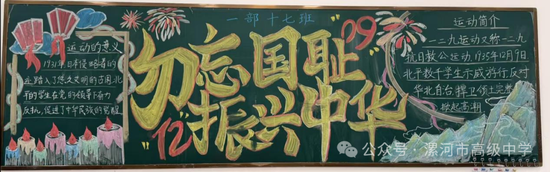 一部十七班
运动的意义
1931年日本侵略者的
北平的学生在党的领导下奋力
反抗,促进了中华民族的觉醒
勿忘国耻
振兴中华
12
09
运动简介
一二九运动又称一二九
抗日救亡运动,1935年12月9日
北平数千学生示威游行反对
华北自治,捍卫领土完整
掀起高潮
公众号·漯河市高级中学